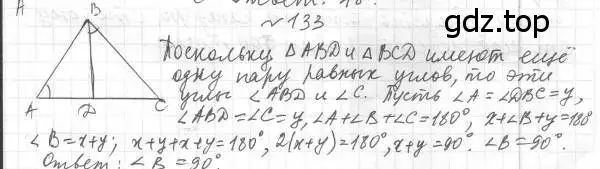 A
Ответ: 40°.
№ 133
gdz.top
B
Поскольку △ABD и △BCD имеют ещё
одну пару равных углов, то эти
углы ∠ABD и ∠C. Пусть ∠A = ∠DBC = y,
A D C
∠ABD = ∠C = y, ∠A + ∠B + ∠C = 180°, x + ∠B + y = 180°
∠B = x + y; x + y + x + y = 180°, 2(x + y) = 180°, x + y = 90°. ∠B = 90°.
Ответ: ∠B = 90°.